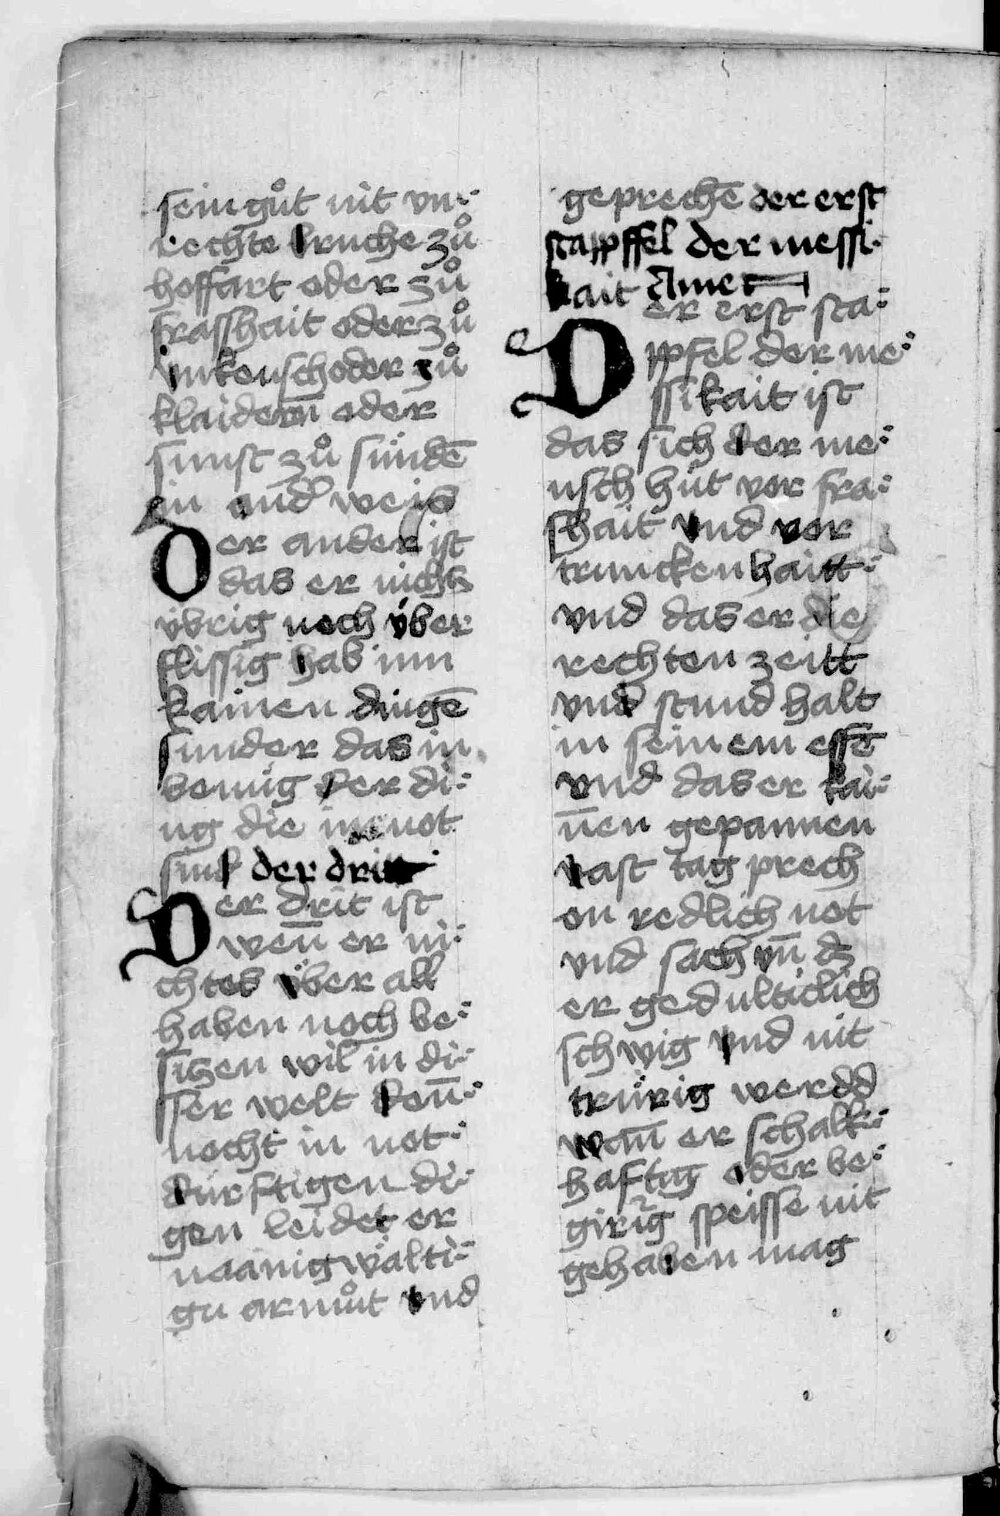 sein gůt nit vn⸗
rechte bruche zů
hoffart oder zů
frasshait oder zů
vnkeusch oder zů
klaidern oder
sunst zů sündē
in and̉ weis
Der ander ist
das er nichts
v̈brig noch v̈ber
flissig hab inn
kainen dingē
sunder das in
benüg der di⸗
ng die im not
sind der dritt
Der drit ist
wen̄ er ni⸗
chtes v̈ber all
haben noch be⸗
siczen wil in di⸗
sser welt den̄⸗
nocht in not⸗
dürftigen di⸗
gen leidet er
manigwälti⸗
gu armůt vnd
geprechē der erst
stappffel der messi⸗
kait Amen
Der erst sta⸗
ppfel der me⸗
ssikait ist
das sich der me⸗
nsch hüt vor fra⸗
shait vnd vor
trunckenhaitt⸗
vnd das er die
rechten zeitt
vnd stund halt
in seinem essē
vnd das er kai⸗
n̄en gepannen
vast tag prech
on redlich not
vnd sach vn̄ dz
er gedulticlich
schwig vnd nit
trürig werdd
wan̄ er schalk⸗
haftig oder be⸗
girig speisse nit
gehaben mag